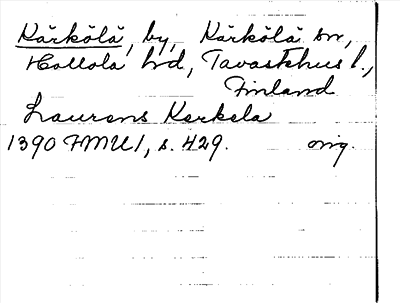 Kärkölä, by, Kärkölä sn,
Hollola hd, Tavastehus l.,
Finland
Laurens Kerkela
1390 FMU I, s. 429. orig.